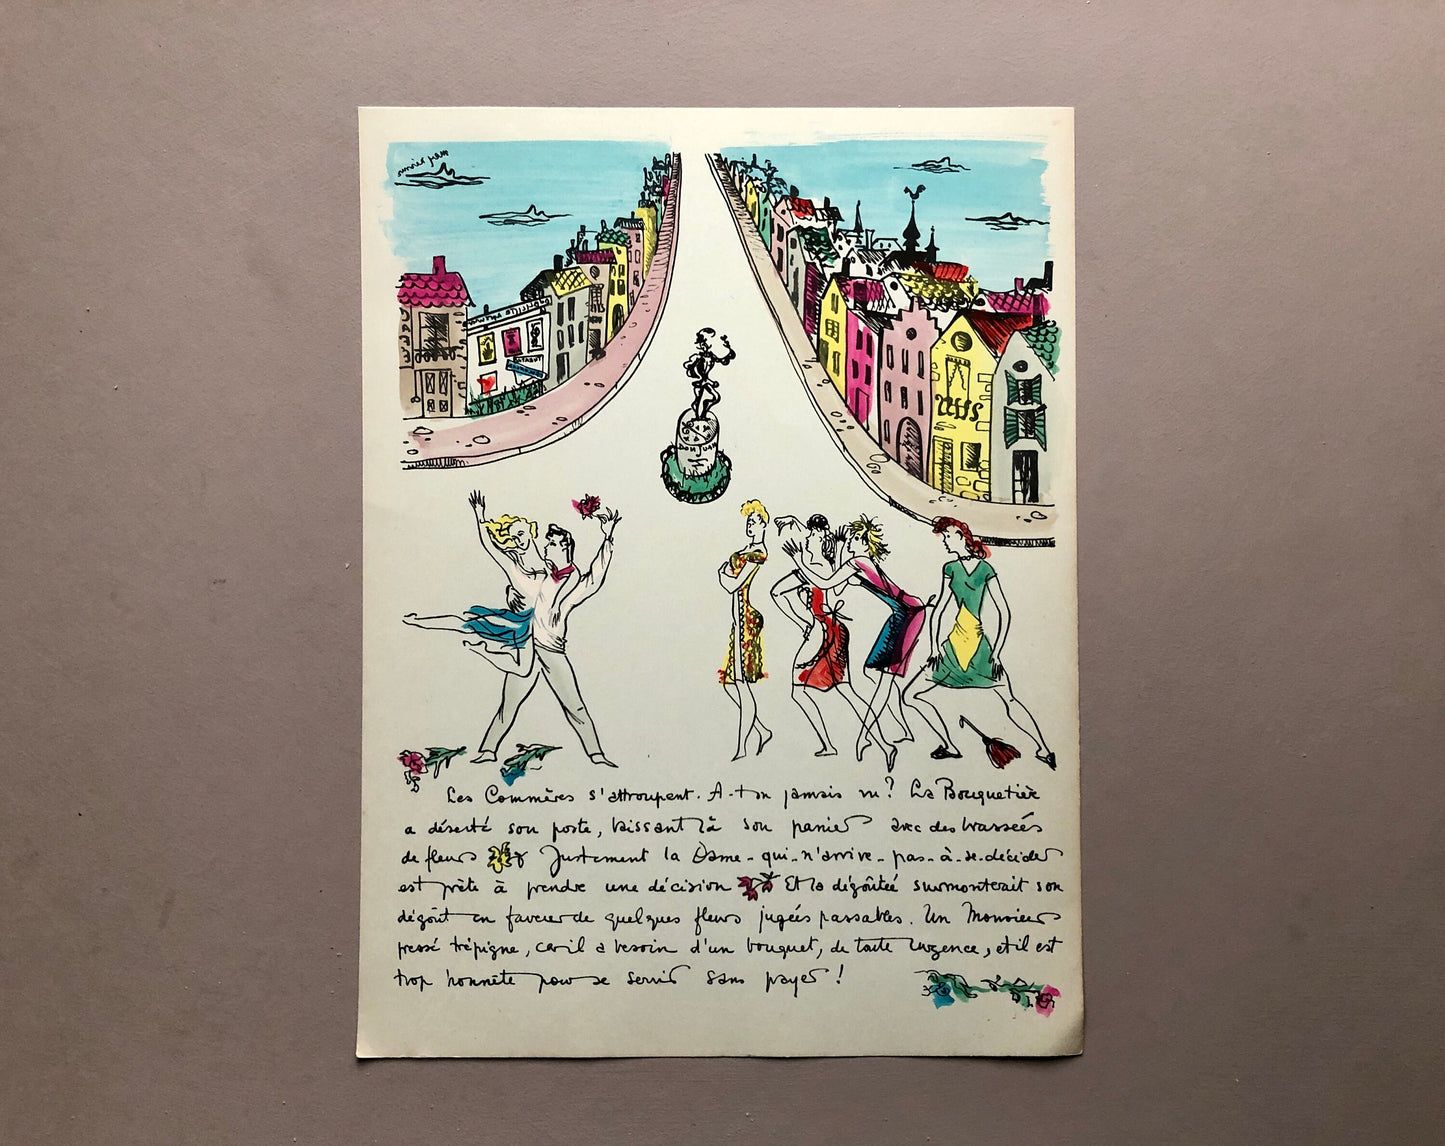 DON JUAN
Les Commères s'attroupent. A-t-on jamais vu? La Bouquetière
a déserté son poste, laissant là son panier avec des brassées
de fleurs Justement la Dame-qui-n'arrive-pas-à-se-décider
est prête à prendre une décision Et la dégoûtée surmonterait son
dégoût en faveur de quelques fleurs jugées passables. Un Monsieur
pressé trépigne, car il a besoin d'un bouquet, de toute urgence, et il est
trop honnête pour se servir sans payer!